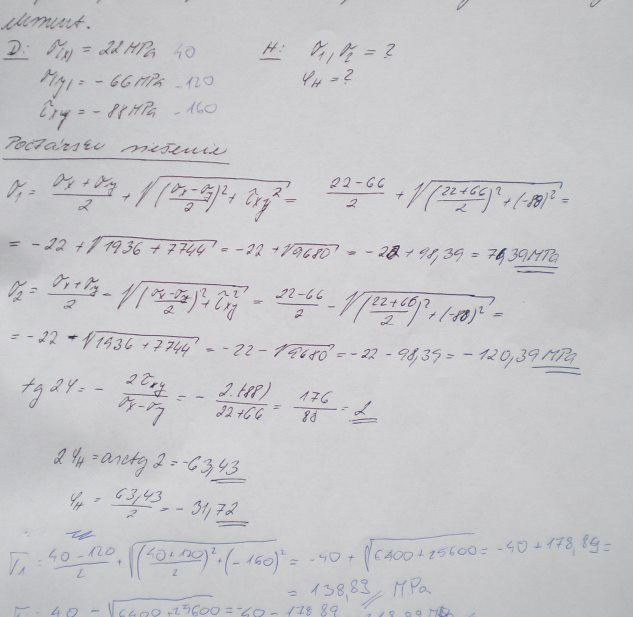 element.
D: σ(x) = 22 MPa 40 H: σ1, σ2 = ?
σ(y) = - 66 MPa -120 φH = ?
τxy = - 88 MPa -160
riešenie
σ1 = (σx + σy)/2 + √((σx - σy)/2)² + τxy² = (22-66)/2 + √((22+66)/2)² + (-88)² =
= -22 + √1936 + 7744 = -22 + √9680 = -22 + 98,39 = 76,39 MPa
σ2 = (σx + σy)/2 - √((σx - σy)/2)² + τxy² = (22-66)/2 - √((22+66)/2)² + (-88)² =
= -22 - √1936 + 7744 = -22 - √9680 = -22 - 98,39 = -120,39 MPa
tg 2φ = - 2τxy/(σx - σy) = - 2.(-88)/(22+66) = 176/88 = 2
2φH = arctg 2 = -63,43
φH = 63,43/2 = -31,72
σ1 = (40-120)/2 + √((40+120)/2)² + (-160)² = -40 + √6400 + 25600 = -40 + 178,89 =
= 138,89 MPa
40 - √6400 + 25600 = -40 - 178,89